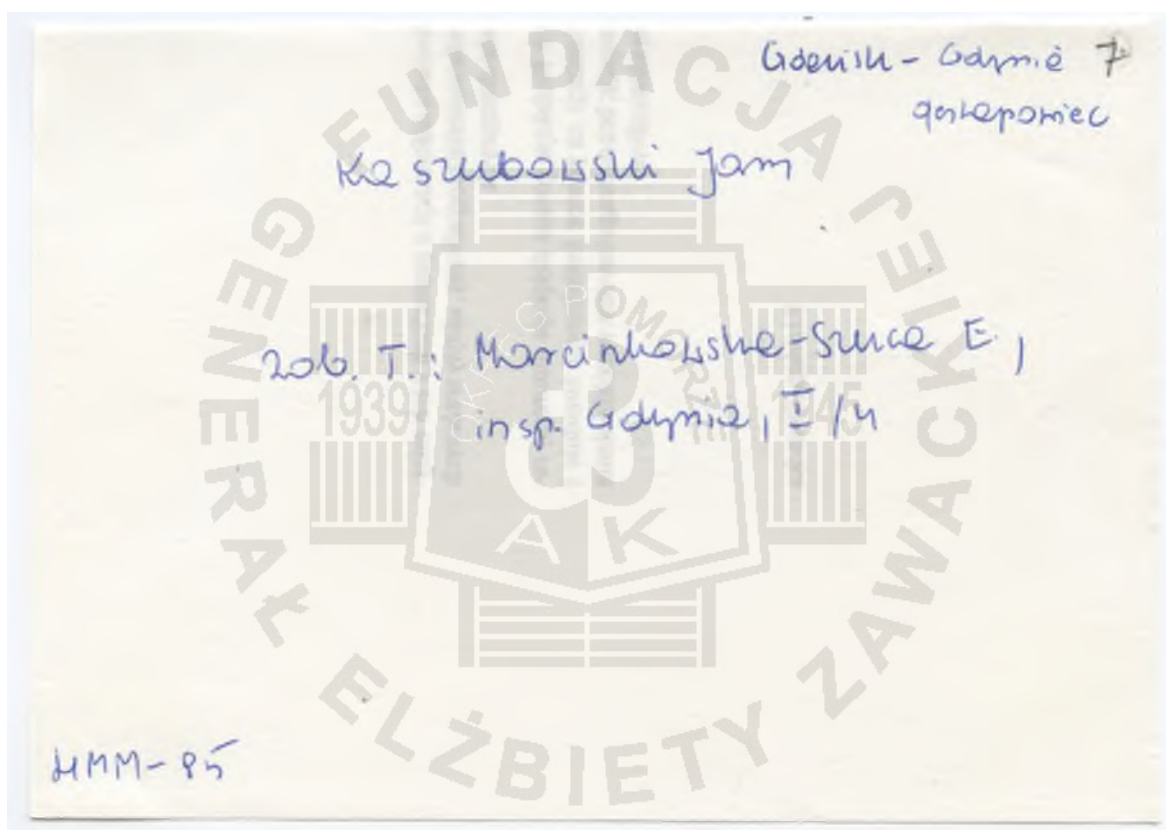 Gdańsk - Gdynia 7
gestapowiec
Kaszubowski Jan
zob. T.: Marcinkowska-Szuca E.,
insp. Gdynia, I/4
HMM-85
FUNDACJA GENERAŁ ELŻBIETY ZAWACKIEJ
OKRĘG POMORZE
1939 1945
AK